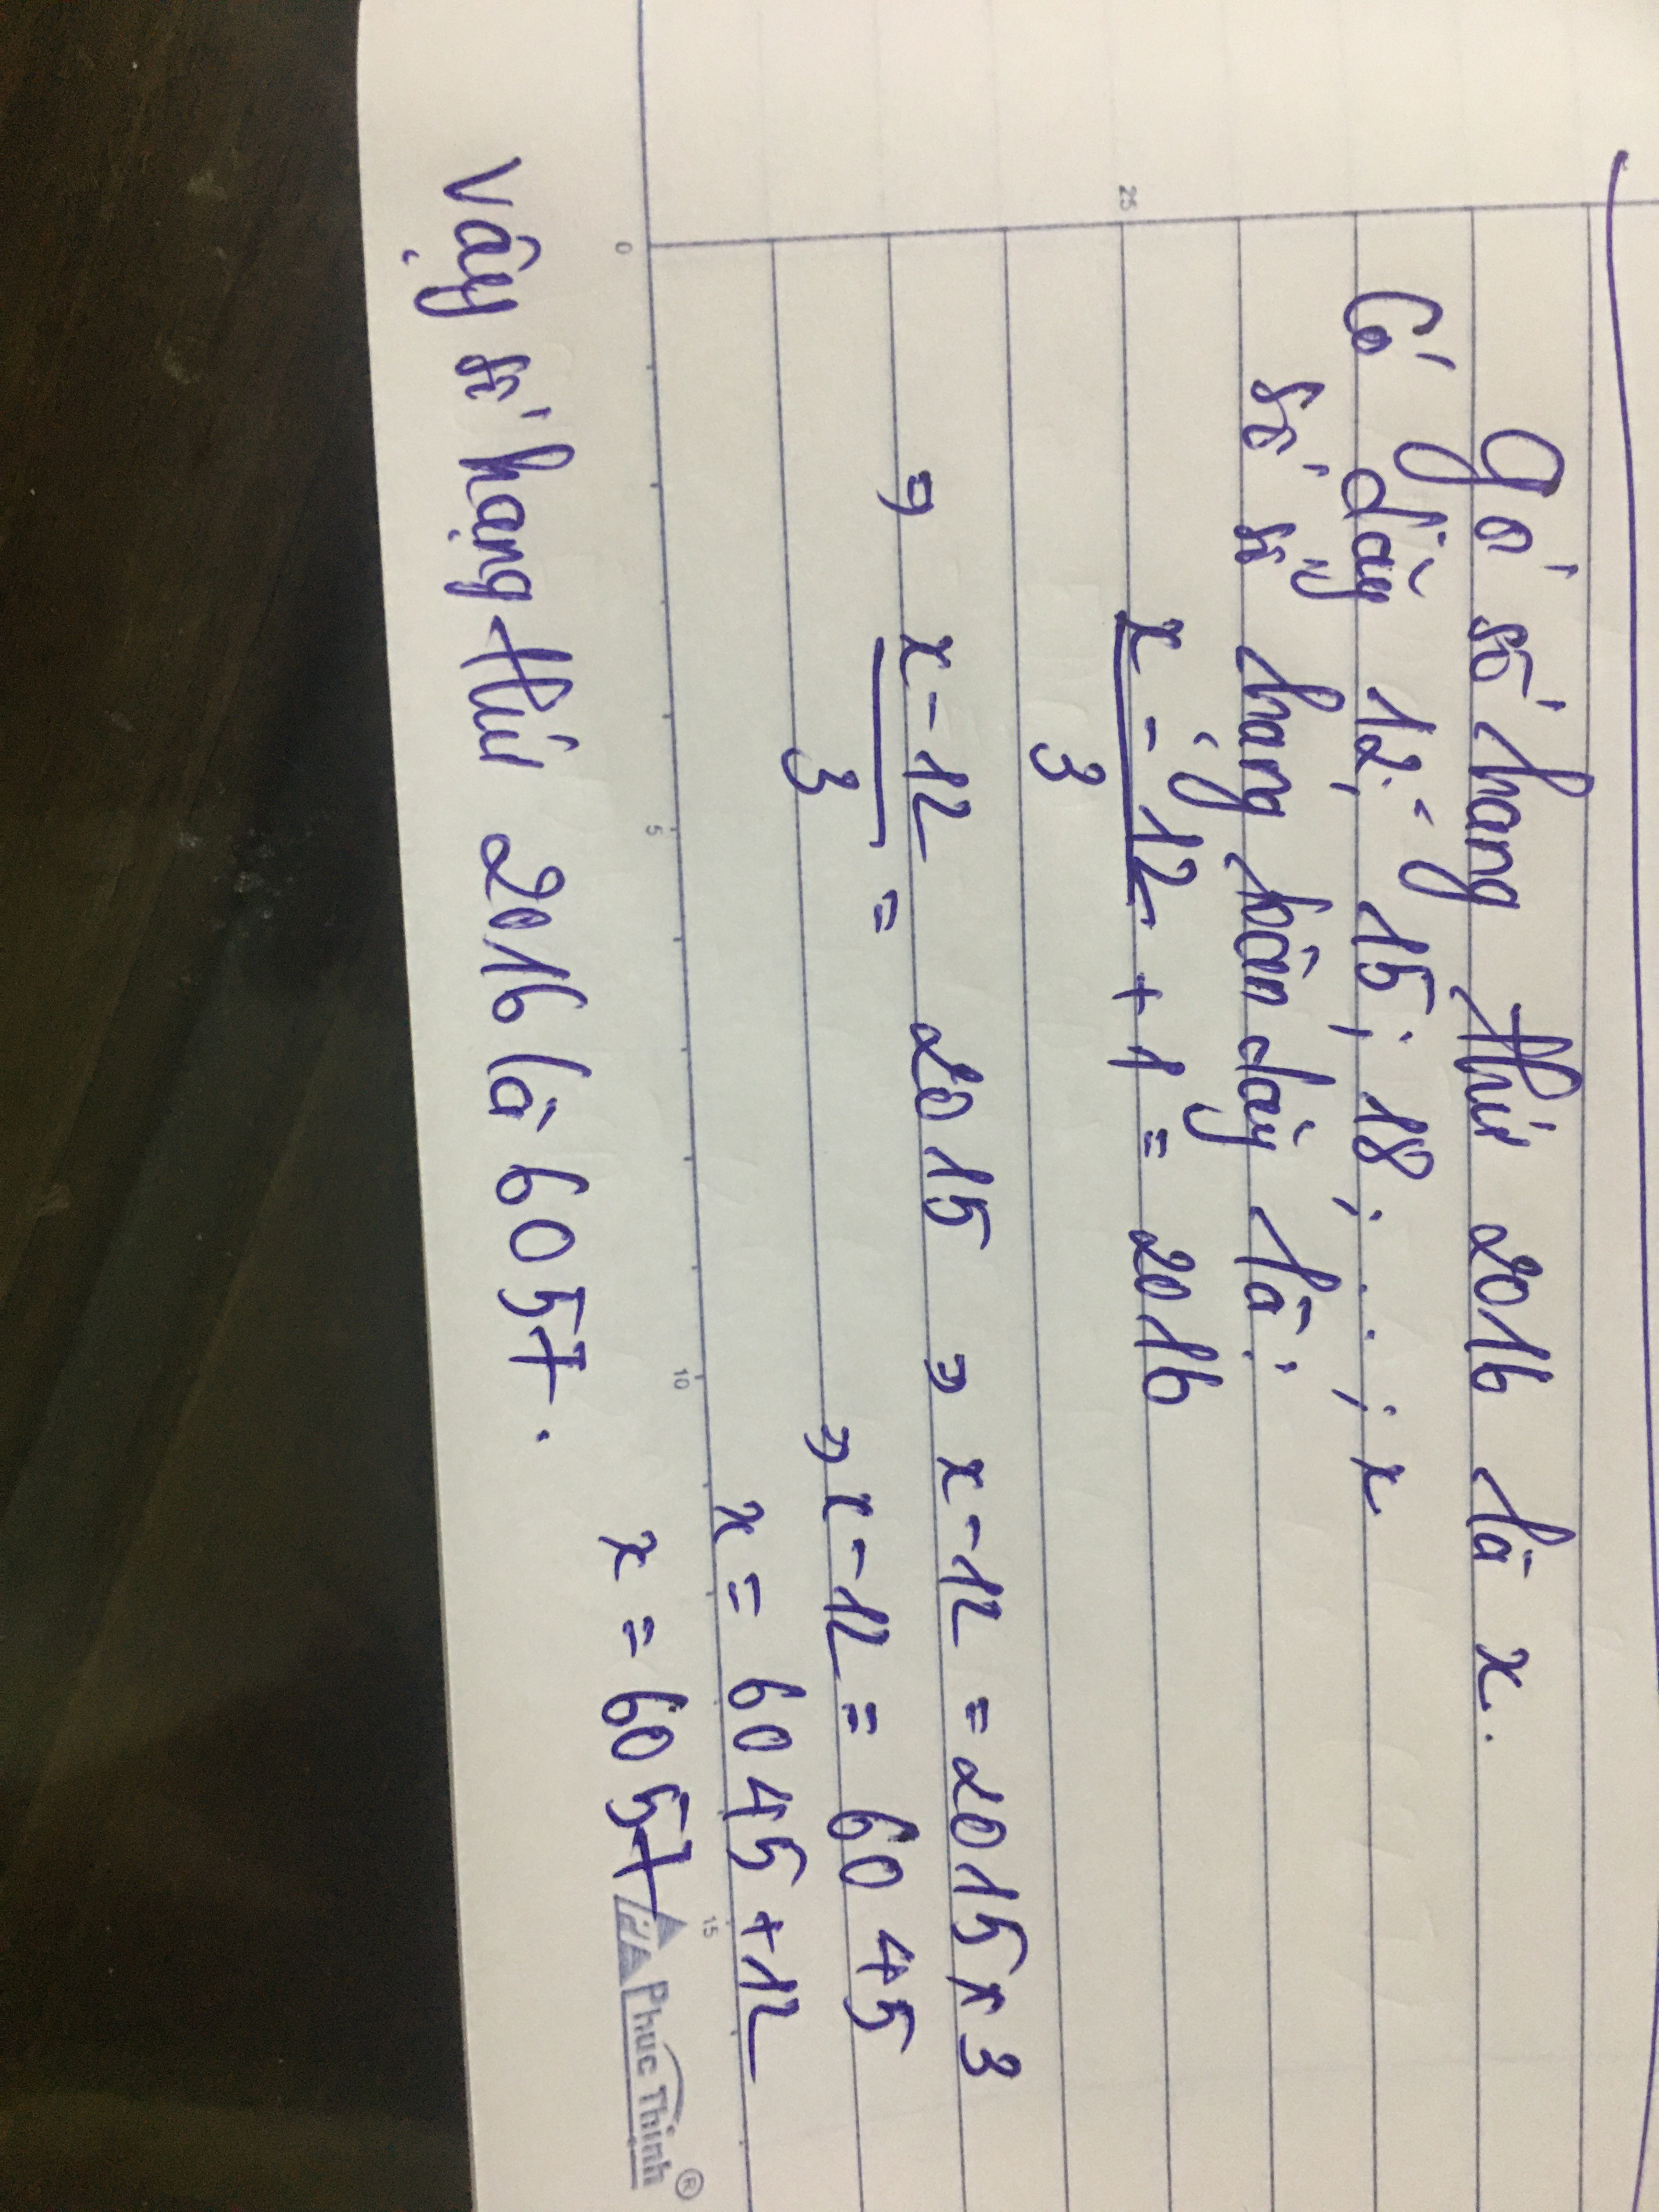 Gọi số hạng thứ 2016 là x.
Có dãy 12; 15; 18; ...; x
Số số hạng của dãy là:
x - 12 + 1 = 2016
3
=> x - 12 = 2015 => x - 12 = 2015 x 3
3
=> x - 12 = 6045
x = 6045 + 12
x = 6057
Vậy số hạng thứ 2016 là 6057.
25
0 5 10 15
Phuc Thinh®